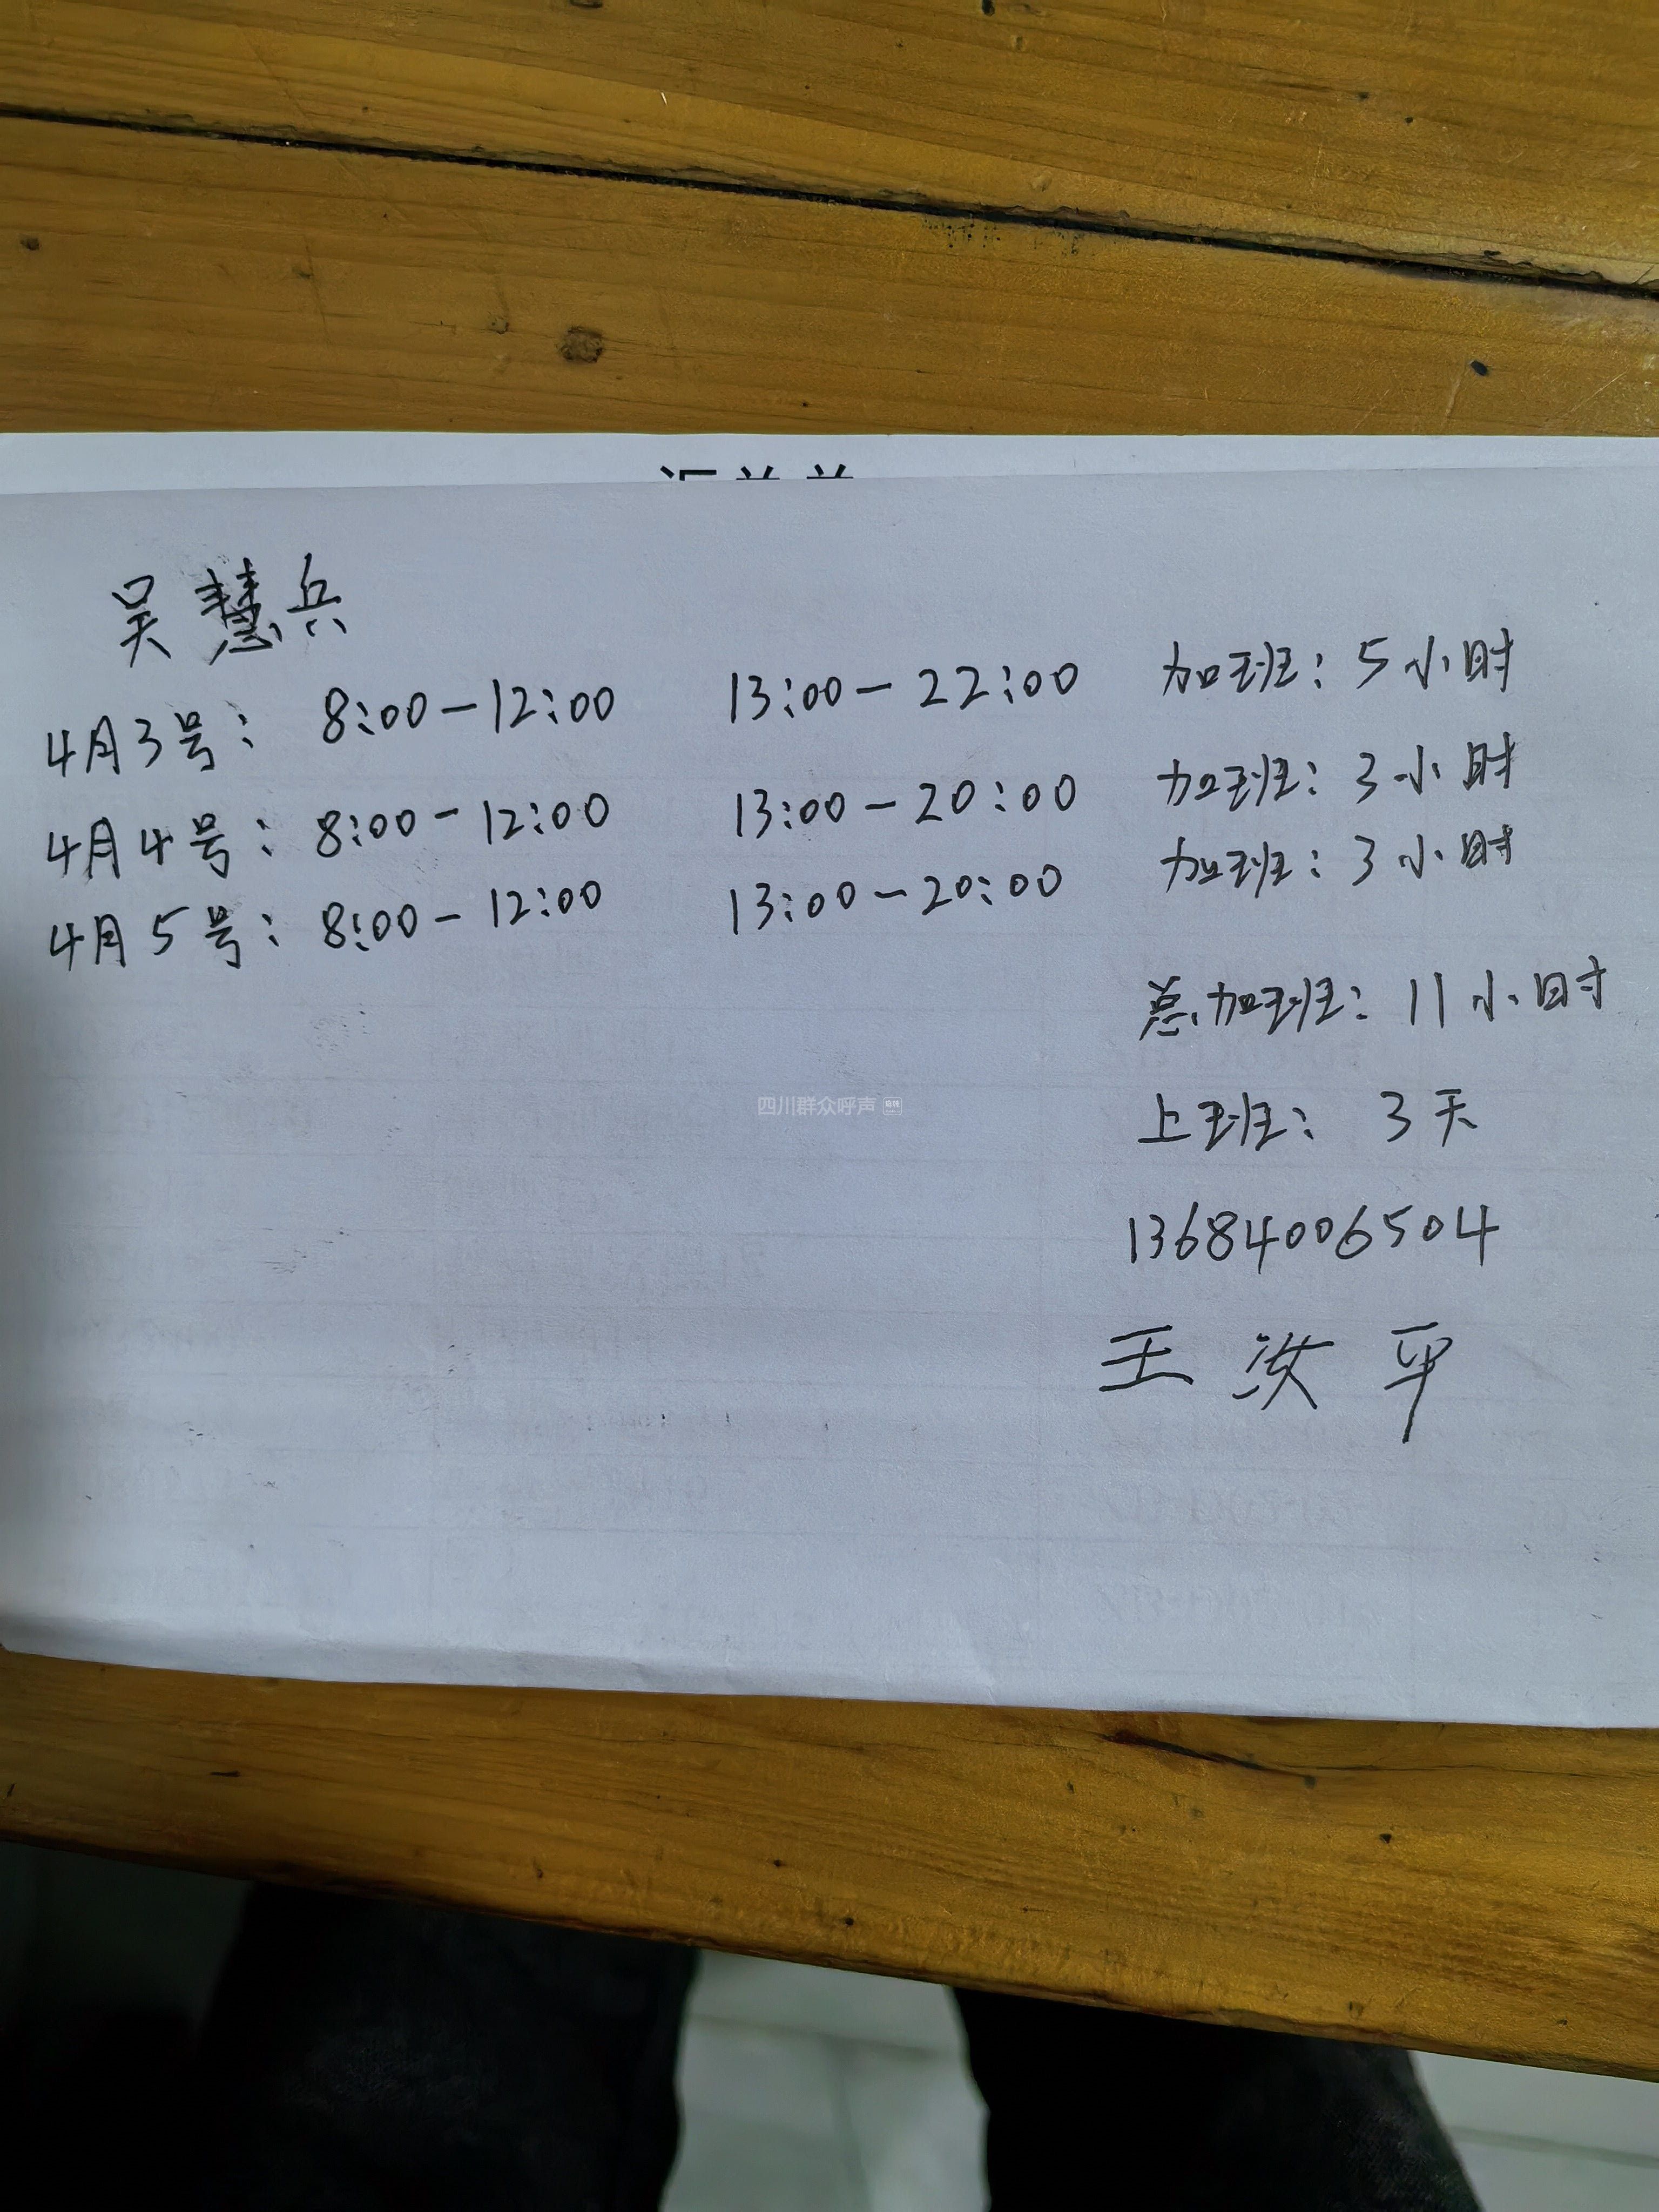 吴慧兵
4月3号： 8:00-12:00 13:00-22:00 加班：5小时
4月4号：8:00-12:00 13:00-20:00 加班：3小时
4月5号：8:00-12:00 13:00-20:00 加班：3小时
总加班：11小时
四川群众呼声
上班： 3天
13684006504
王汝平